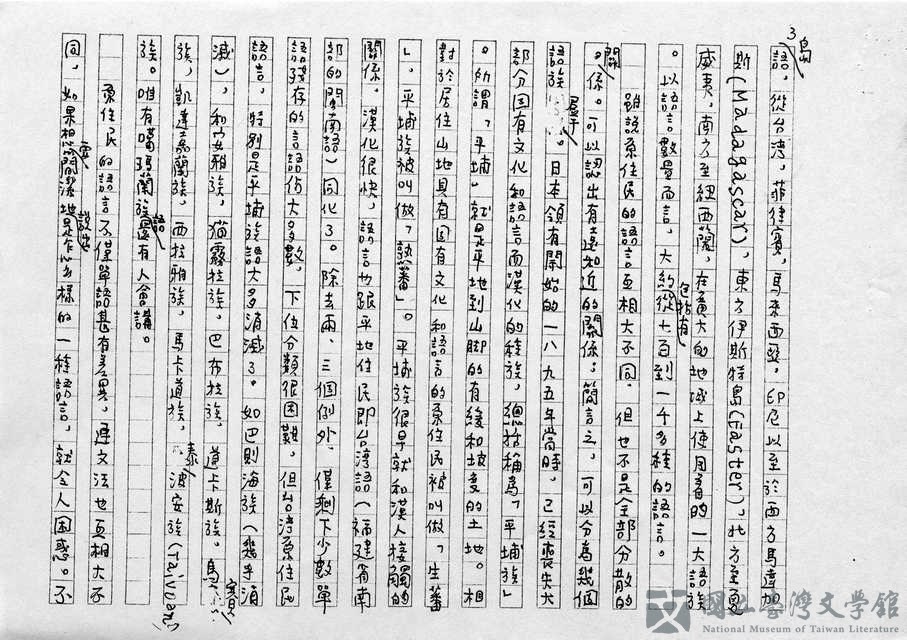 3島
語，從台湾，菲律賓，馬來西亞，印尼以至於西方馬達加
斯(Madagascar)，東方伊斯特島(Easter)，北方至夏
威夷，南方至紐西蘭，在廣大的地域上使用着的一大語族
。以語言數量而言，大約從七百到一千多種的語言。
包括有
雖說原住民的語言互相大不同，但也不是全部分散的
關係。可以認出有遠和近的關係，簡言之，可以分為幾個
語族群。日本領有開始的一八九五年當時，已經喪失大
部分固有文化和語言而漢化的種族，總括稱為「平埔族」
。所謂「平埔」就是平地到山脚的有緩和坡度的土地。相
對於居住山地具有固有文化和語言的原住民被叫做「生蕃
」，平埔族被叫做「熟蕃」。平埔族很早就和漢人接觸的
關係，漢化很快，語言也跟平地住民即台湾語（福建省南
部的閩南語）同化了。除去兩、三個例外，僅剩下少數單
語殘存的語言佔大多數，下位分類很困難，但台湾原住民
語言，特別是平埔族語大多消滅了。如巴則海族（幾乎消
滅），和安雅族，猫霧拉族，巴布拉族，道卡斯族，馬賽
族，凱達格蘭族，西拉雅族，馬卡道族，泰波安族(Taivoan)
族。唯有噶瑪蘭族語還有人會講。
原住民的語言不僅單語甚有差異，連文法也互相大不
同，如果要想簡潔地說出是怎麼樣的一種語言，就令人困惑。不
國立臺灣文學館
National Museum of Taiwan Literature